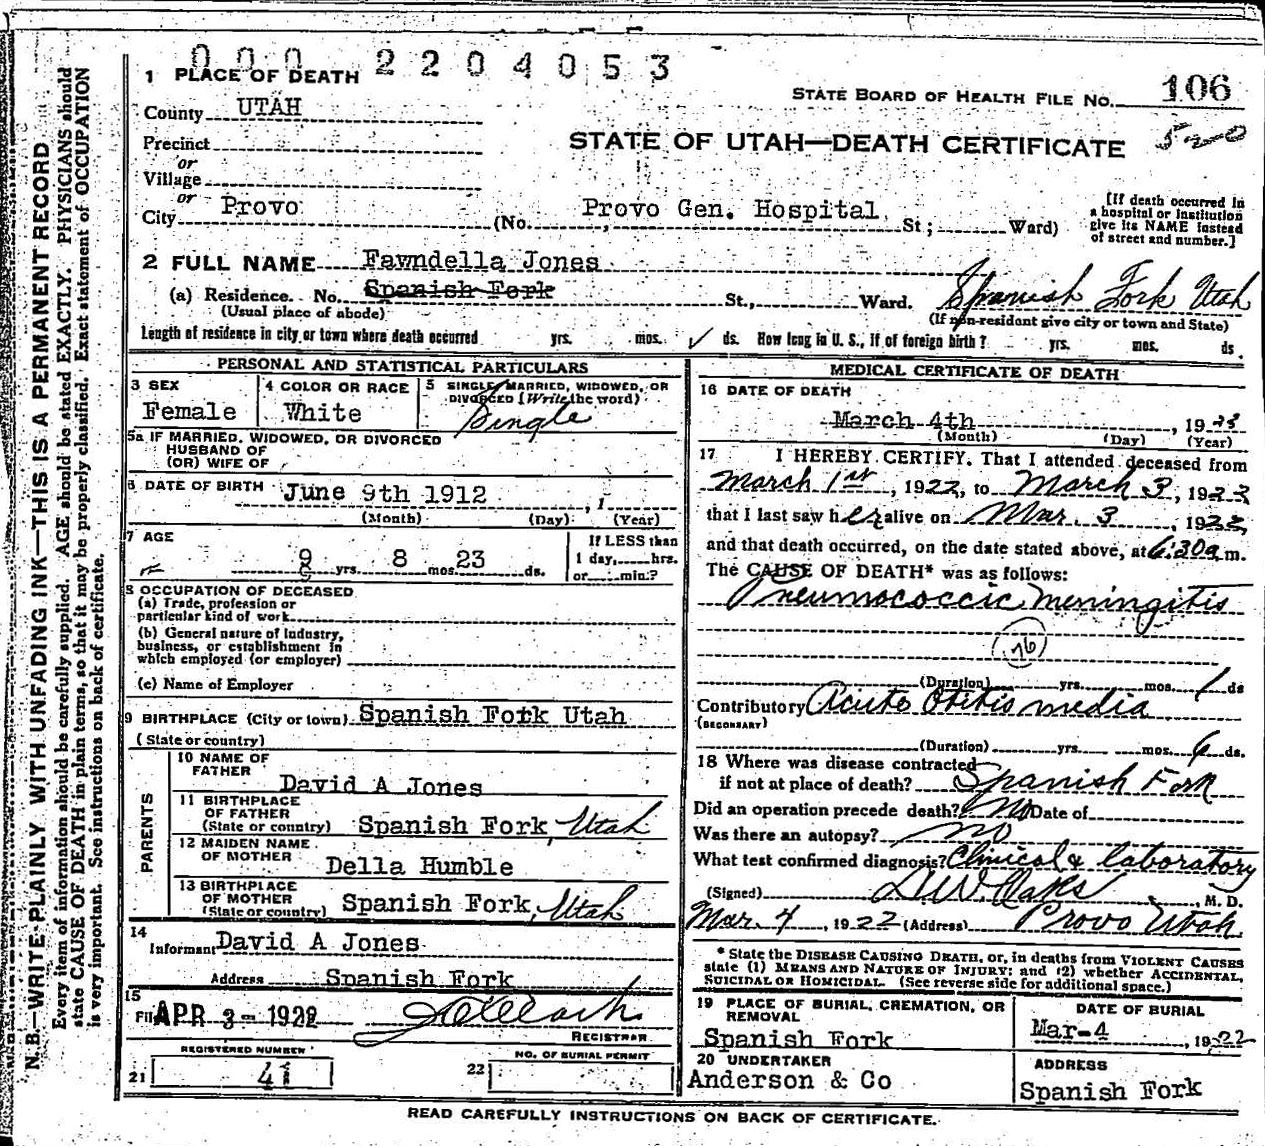 000 2204053
1 PLACE OF DEATH
STATE BOARD OF HEALTH FILE NO. 106
County UTAH
520
STATE OF UTAH—DEATH CERTIFICATE
Precinct
or
Village
or
City Provo (No. Provo Gen. Hospital St; Ward)
[If death occurred in a hospital or institution give its NAME instead of street and number.]
2 FULL NAME Fawndella Jones
(a) Residence. No. Spanish Fork St., Ward. Spanish Fork Utah
(Usual place of abode) (If non-resident give city or town and State)
Length of residence in city or town where death occurred yrs. mos. ds. How long in U. S., if of foreign birth? yrs. mos. ds.
PERSONAL AND STATISTICAL PARTICULARS
3 SEX Female
4 COLOR OR RACE White
5 SINGLE, MARRIED, WIDOWED, OR DIVORCED (Write the word) Single
5a IF MARRIED, WIDOWED, OR DIVORCED
HUSBAND OF
(OR) WIFE OF
6 DATE OF BIRTH June 9th 1912, 1
(Month) (Day) (Year)
7 AGE
9 yrs. 8 mos. 23 ds.
If LESS than
1 day, hrs.
or min.?
8 OCCUPATION OF DECEASED
(a) Trade, profession or
particular kind of work
(b) General nature of Industry,
business, or establishment in
which employed (or employer)
(c) Name of Employer
9 BIRTHPLACE (City or town) Spanish Fork Utah
(State or country)
PARENTS
10 NAME OF FATHER David A Jones
11 BIRTHPLACE OF FATHER (State or country) Spanish Fork, Utah
12 MAIDEN NAME OF MOTHER Della Humble
13 BIRTHPLACE OF MOTHER (State or country) Spanish Fork, Utah
14
Informant David A Jones
Address Spanish Fork
15
Fil APR 3- 1922
REGISTRAR
REGISTERED NUMBER
21 41
NO. OF BURIAL PERMIT
22
MEDICAL CERTIFICATE OF DEATH
16 DATE OF DEATH
March 4th, 19
(Month) (Day) (Year)
17 I HEREBY CERTIFY. That I attended deceased from
March 1st, 1922, to March 3, 1922
that I last saw her alive on Mar. 3, 1922
and that death occurred, on the date stated above, at 6:30a m.
The CAUSE OF DEATH* was as follows:
Pneumococcic meningitis
76
(Duration) yrs. mos. 1 ds
Contributory Acute Otitis media
(SECONDARY)
(Duration) yrs. mos. 6 ds.
18 Where was disease contracted
if not at place of death? Spanish Fork
Did an operation precede death? no Date of
Was there an autopsy? no
What test confirmed diagnosis? Clinical & laboratory
(Signed) M. D.
Mar. 4, 1922 (Address) Provo Utah
* State the DISEASE CAUSING DEATH, or, in deaths from VIOLENT CAUSES
state (1) MEANS AND NATURE OF INJURY; and (2) whether ACCIDENTAL,
SUICIDAL OR HOMICIDAL. (See reverse side for additional space.)
19 PLACE OF BURIAL, CREMATION, OR REMOVAL
Spanish Fork
DATE OF BURIAL
Mar-4, 1922
20 UNDERTAKER
Anderson & Co
ADDRESS
Spanish Fork
READ CAREFULLY INSTRUCTIONS ON BACK OF CERTIFICATE.
N. B.—WRITE PLAINLY WITH UNFADING INK—THIS IS A PERMANENT RECORD
Every item of information should be carefully supplied. AGE should be stated EXACTLY. PHYSICIANS should
state CAUSE OF DEATH in plain terms, so that it may be properly classified. Exact statement of OCCUPATION
is very important. See instructions on back of certificate.